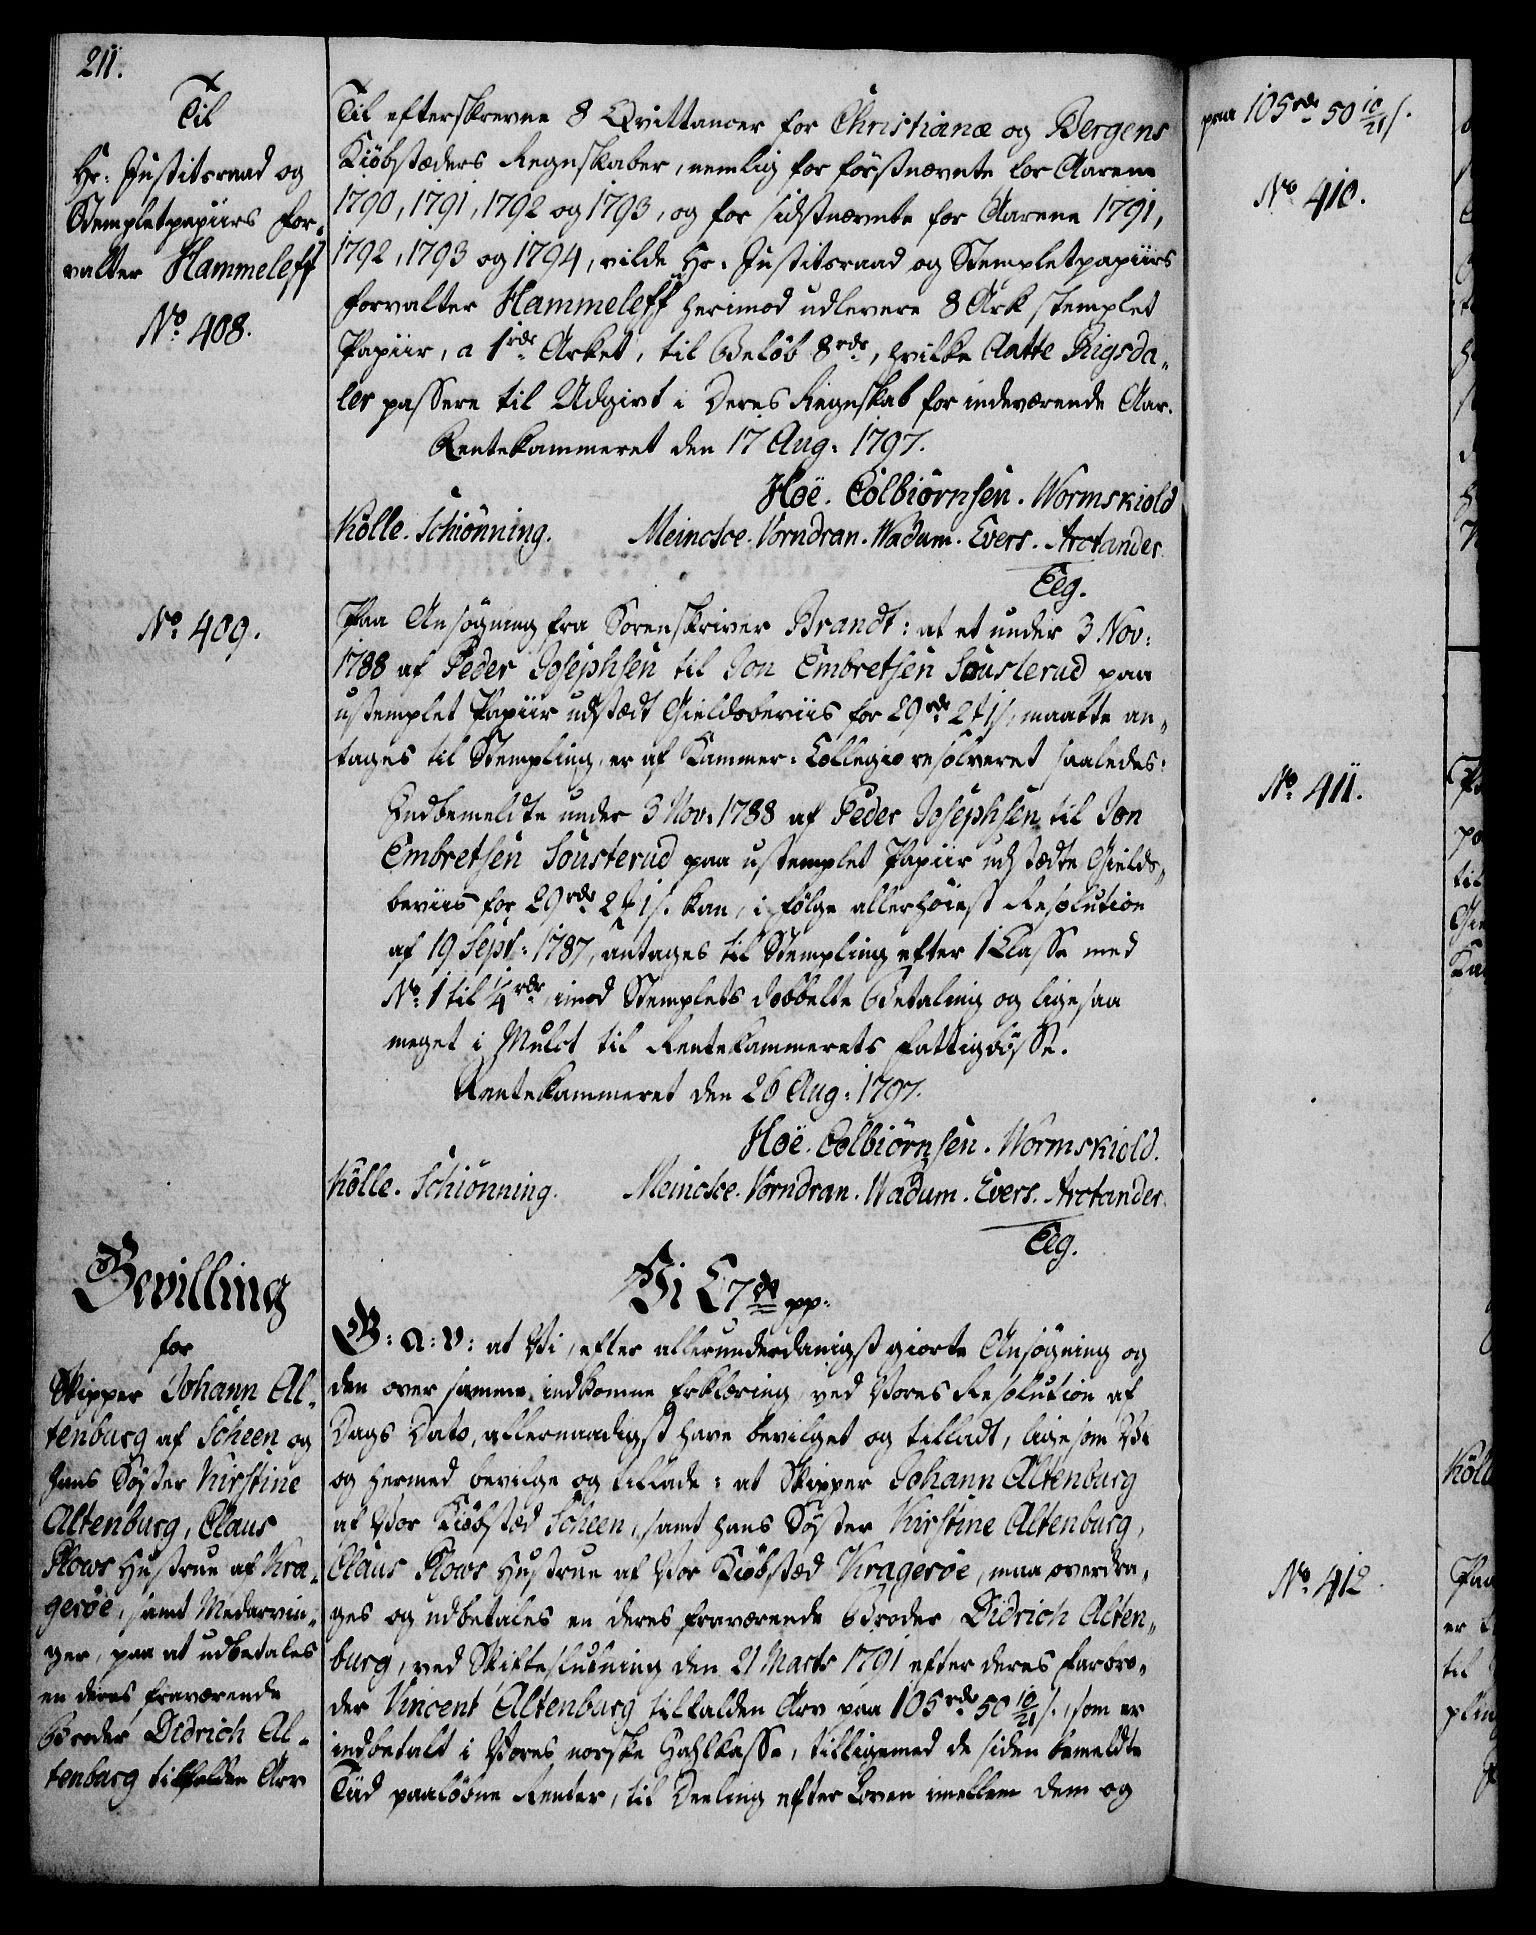 211.
Til
Hr: Justitsraad og
Stempletpapiirs For-
valter Hammeleff
No. 408.
Til efterskrevne 8 Qvittancer for Christianæ og Bergens
Kiöbstæders Regnskaber, nemlig for förstnævnte for Aarene
1790, 1791, 1792 og 1793, og for sidstnævnte for Aarene 1791,
1792, 1793 og 1794, vilde Hr. Justitsraad og Stempletpapiirs
Forvalter Hammeleff herimod udlevere 8 Ark stemplet
Papiir, a 1rdr Arket, til Belöb 8rdr, hvilke Aatte Rigsda-
ler passere til Udgivt i Deres Regnskab for indeværende Aar.
Rentekammeret den 17 Aug: 1797.
Höe. Colbiörnsen. Wormskiold
Kölle. Schiönning. Meincke. Vorndran. Wadum. Evers. Arctander.
Eeg.
No. 409.
Paa Ansögning fra Sorenskriver Brandt: at et under 3 Nov:
1788 af Peder Josephsen til Jon Embretsen Sousterud paa
ustemplet Papiir udstædt Gieldsbeviis for 29rdr 2 1 s, maatte an-
tages til Stempling, er af Kammer-Collegio resolveret saaledes:
Indbemeldte under 3 Nov: 1788 af Peder Josephsen til Jon
Embretsen Sousterud paa ustemplet Papiir udstædte Gields-
beviis for 29rdr 2 1 s. kan, ifölge allerhöiest Resolution
af 19 Sept: 1787, antages til Stempling efter 1 Classe med
No. 1 til 1/4 rdr, imod Stemplets dobbelte Betaling og ligesaa
meget i Mulct til Rentekammerets Fattigbösse.
Rentekammeret den 26 Aug: 1797.
Höe. Colbiörnsen. Wormskiold.
Kölle. Schiönning. Meincke. Vorndran. Wadum. Evers. Arctander.
Eeg.
Bevilling
for
Skipper Johann Al-
tenburg af Scheen og
hans Söster Kirstine
Altenburg, Claus
Plows Hustrue af Kra-
geröe, samt Medarvin-
ger, paa at udbetales
en deres fraværende
Broder Didrich Al-
tenburg tilfalden Arv
Vi C 7de pp:
G: A: V: at Vi, efter allerunderdanigst giorte Ansögning og
den over samme indkomne Erklæring, ved Vores Resolution af
Dags Dato, allernaadigst have bevilget og tilladt, ligesom Vi
og hermed bevilge og tillade: at Skipper Johann Altenburg
af Vor Kiöbstæd Scheen, samt hans Söster Kirstine Altenburg,
Claus Plows Hustrue af Vor Kiöbstæd Krageröe, maa overdra-
ges og udbetales en deres fraværende Broder Didrich Alten-
burg, ved Skifteslutning den 21 Marts 1791 efter deres Farbro-
der Vincent Altenburg tilfalden Arv paa 105rdr 50 10/21 s., som er
indbetalt i Vores norske Zahlkasse, tilligemed de siden bemeldte
Tiid paalöbne Renter, til Deeling efter Loven imellem dem og
paa 105rdr 50 10/21 s.
No. 410.
No. 411.
No. 412.